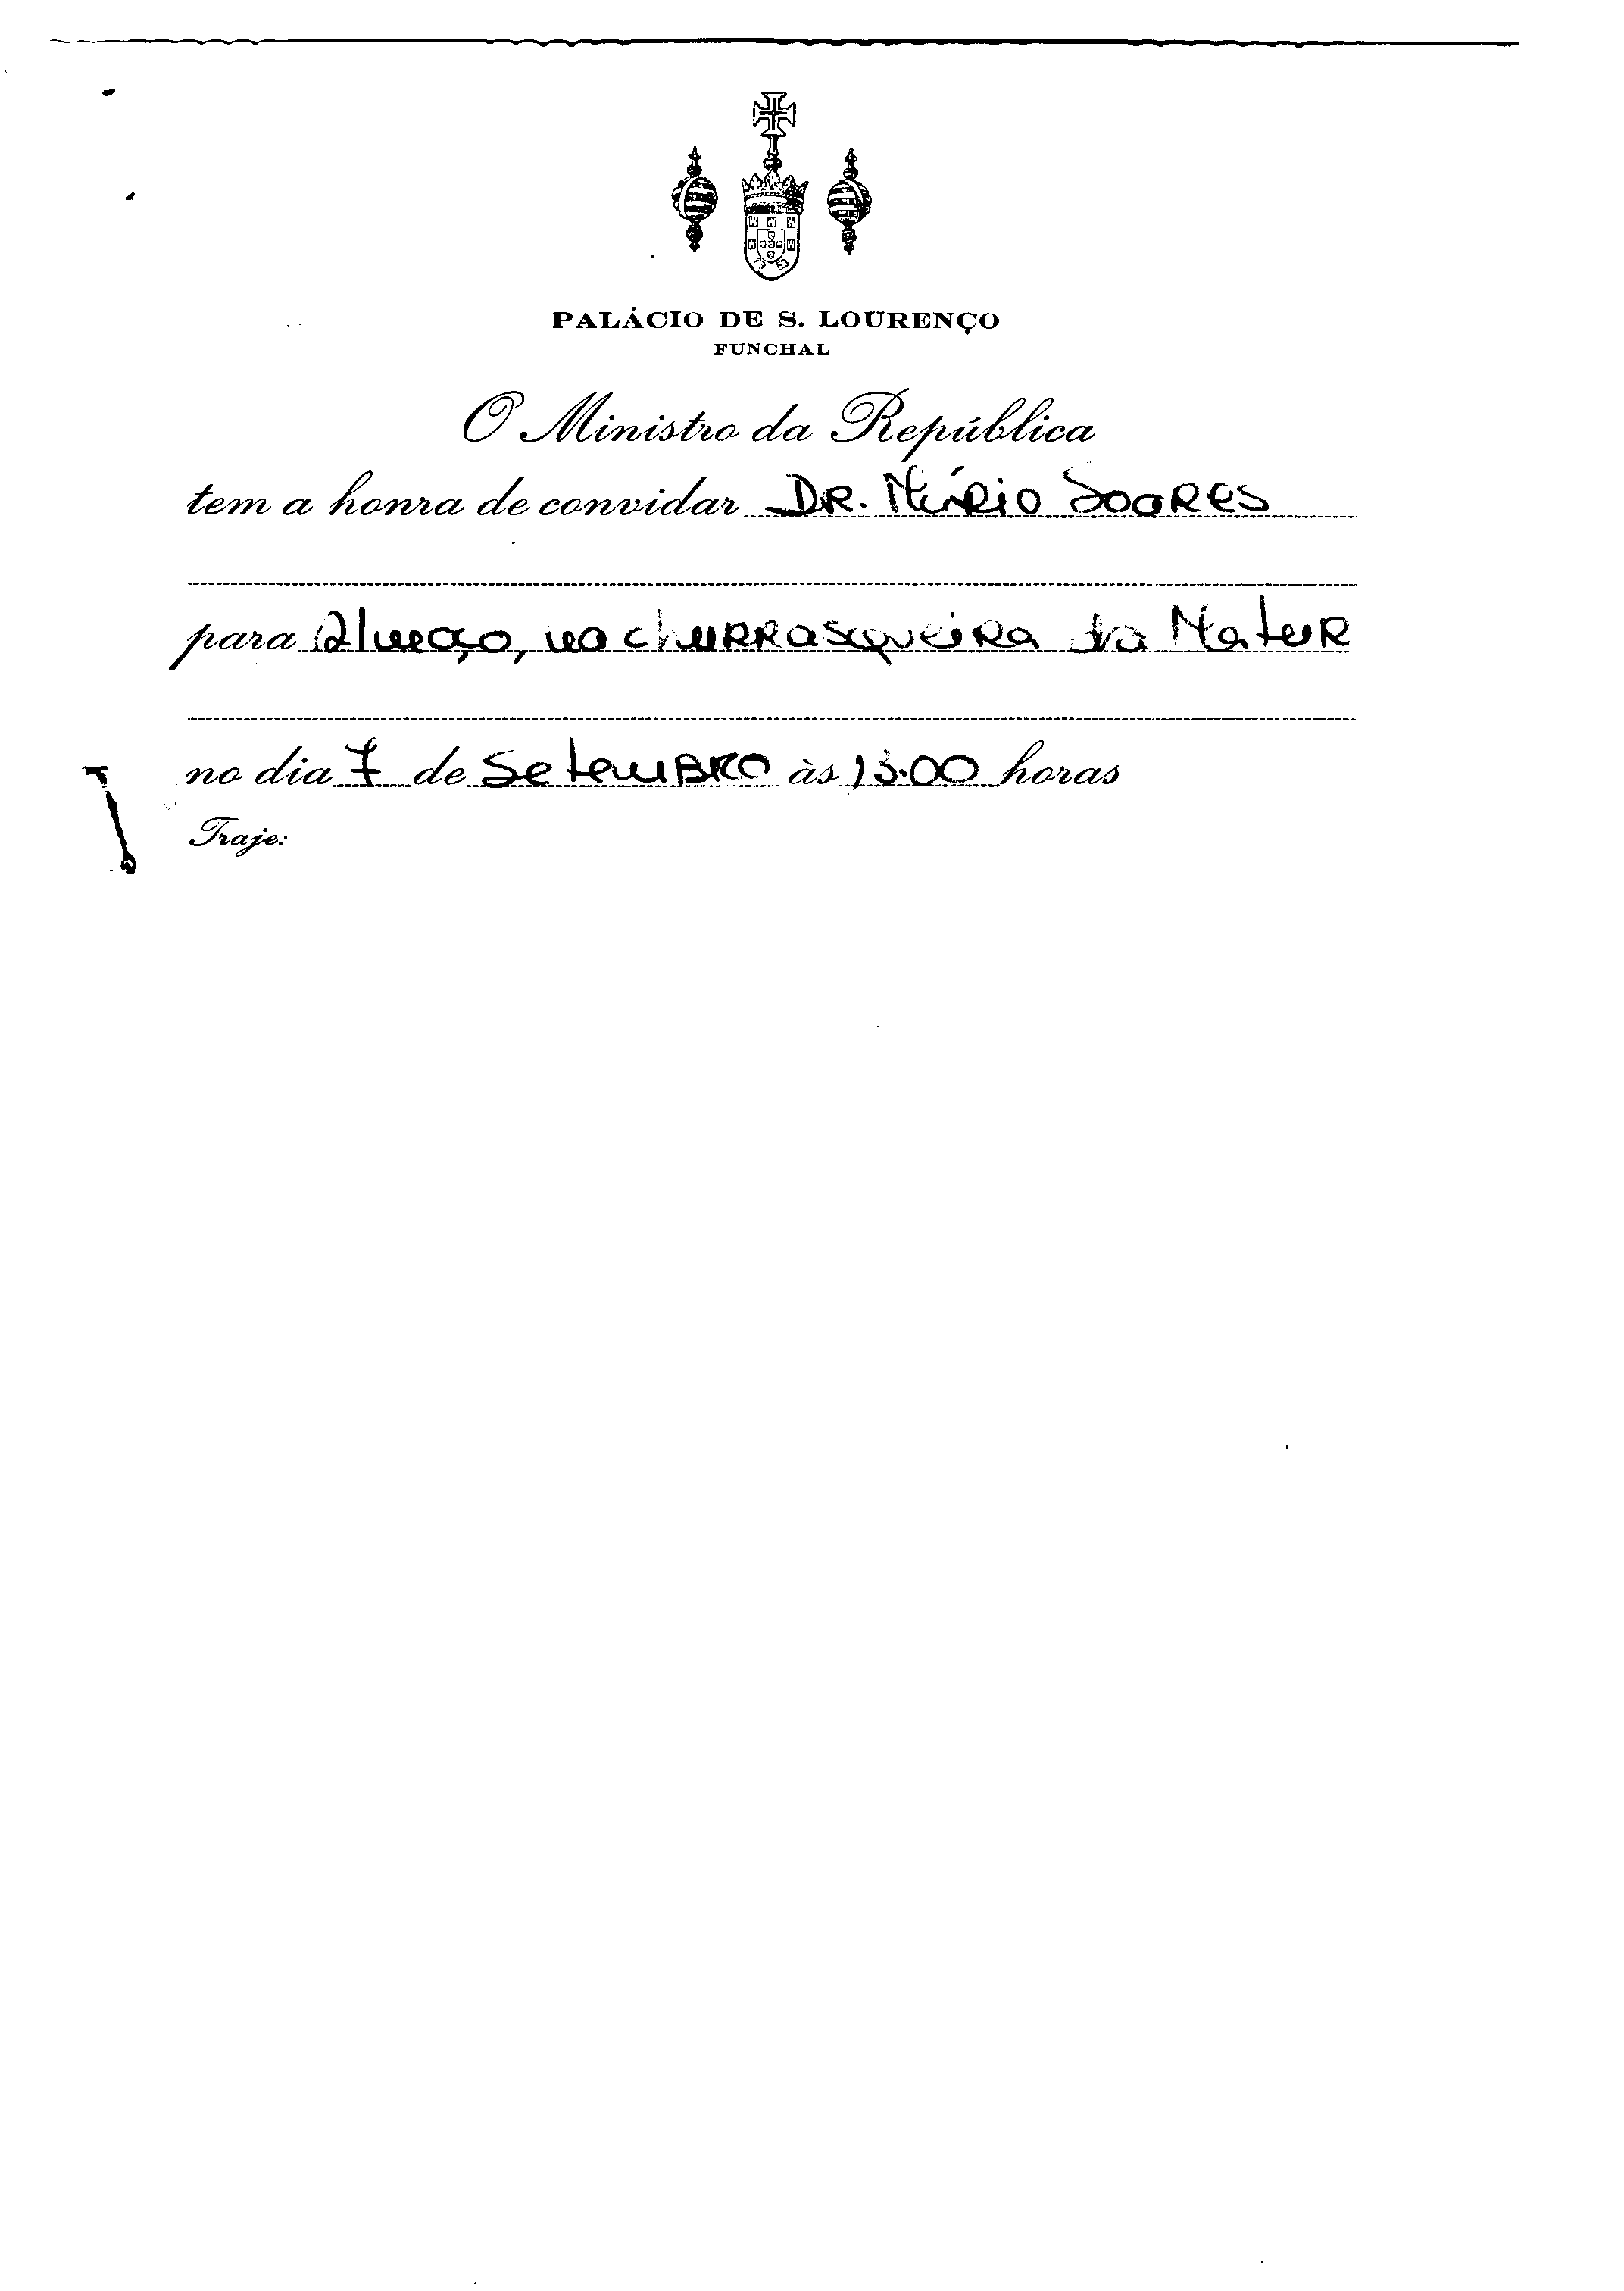 PALÁCIO DE S. LOURENÇO
FUNCHAL
O Ministro da República
tem a honra de convidar DR. MÁRIO SOARES
para almoço, na churrasqueira da Matur
no dia 7 de Setembro às 13.00 horas
Traje: